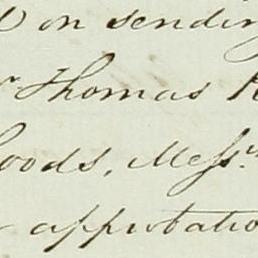 on sending
Thomas
Goods, Messrs.
approbation